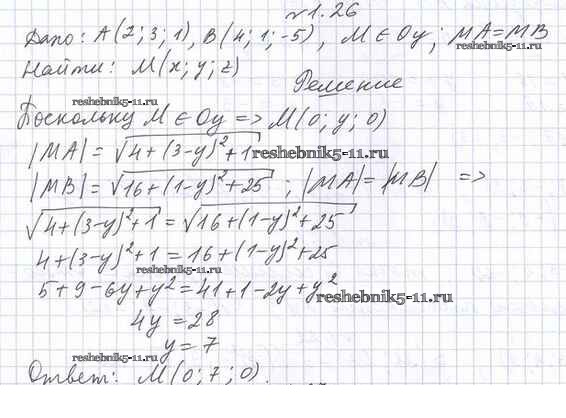 №1.26
Дано: A(2; 3; 1), B(4; 1; -5), M ∈ Oy; MA=MB
Найти: M(x; y; z)
reshebnik5-11.ru
Решение
reshebnik5-11.ru
Поскольку M ∈ Oy => M(0; y; 0)
|MA| = √(4+(3-y)²+1) reshebnik5-11.ru
|MB| = √(16+(1-y)²+25) ; |MA| = |MB| =>
√(4+(3-y)²+1) = √(16+(1-y)²+25)
4+(3-y)²+1 = 16+(1-y)²+25
reshebnik5-11.ru
5+9-6y+y² = 41+1-2y+y²
reshebnik5-11.ru
4y = 28
y = 7
reshebnik5-11.ru
Ответ: M(0; 7; 0).